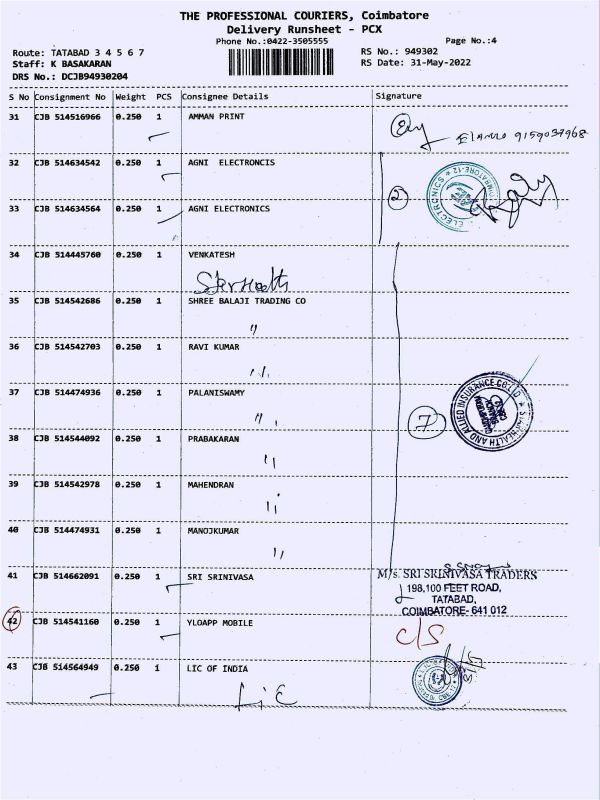 THE PROFESSIONAL COURIERS, Coimbatore
Delivery Runsheet - PCX
Phone No.:0422-3505555
Page No.:4
Route: TATABAD 3 4 5 6 7
RS No.: 949302
Staff: K BASAKARAN
RS Date: 31-May-2022
DRS No.: DCJB94930204
S No Consignment No Weight PCS Consignee Details Signature
31 CJB 514516966 0.250 1 AMMAN PRINT
9159037968
32 CJB 514634542 0.250 1 AGNI ELECTRONCIS
2
ELECTRONICS * COIMBATORE-12 *
33 CJB 514634564 0.250 1 AGNI ELECTRONICS
34 CJB 514445760 0.250 1 VENKATESH
35 CJB 514542686 0.250 1 SHREE BALAJI TRADING CO
"
36 CJB 514542703 0.250 1 RAVI KUMAR
"
37 CJB 514474936 0.250 1 PALANISWAMY
"
7
STAR HEALTH AND ALLIED INSURANCE CO LTD *
38 CJB 514544092 0.250 1 PRABAKARAN
"
39 CJB 514542978 0.250 1 MAHENDRAN
"
40 CJB 514474931 0.250 1 MANOJKUMAR
"
41 CJB 514662091 0.250 1 SRI SRINIVASA
M/s. SRI SRINIVASA TRADERS
198,100 FEET ROAD,
TATABAD,
COIMBATORE- 641 012
42 CJB 514541160 0.250 1 YLOAPP MOBILE
C/S
43 CJB 514564949 0.250 1 LIC OF INDIA
LiC